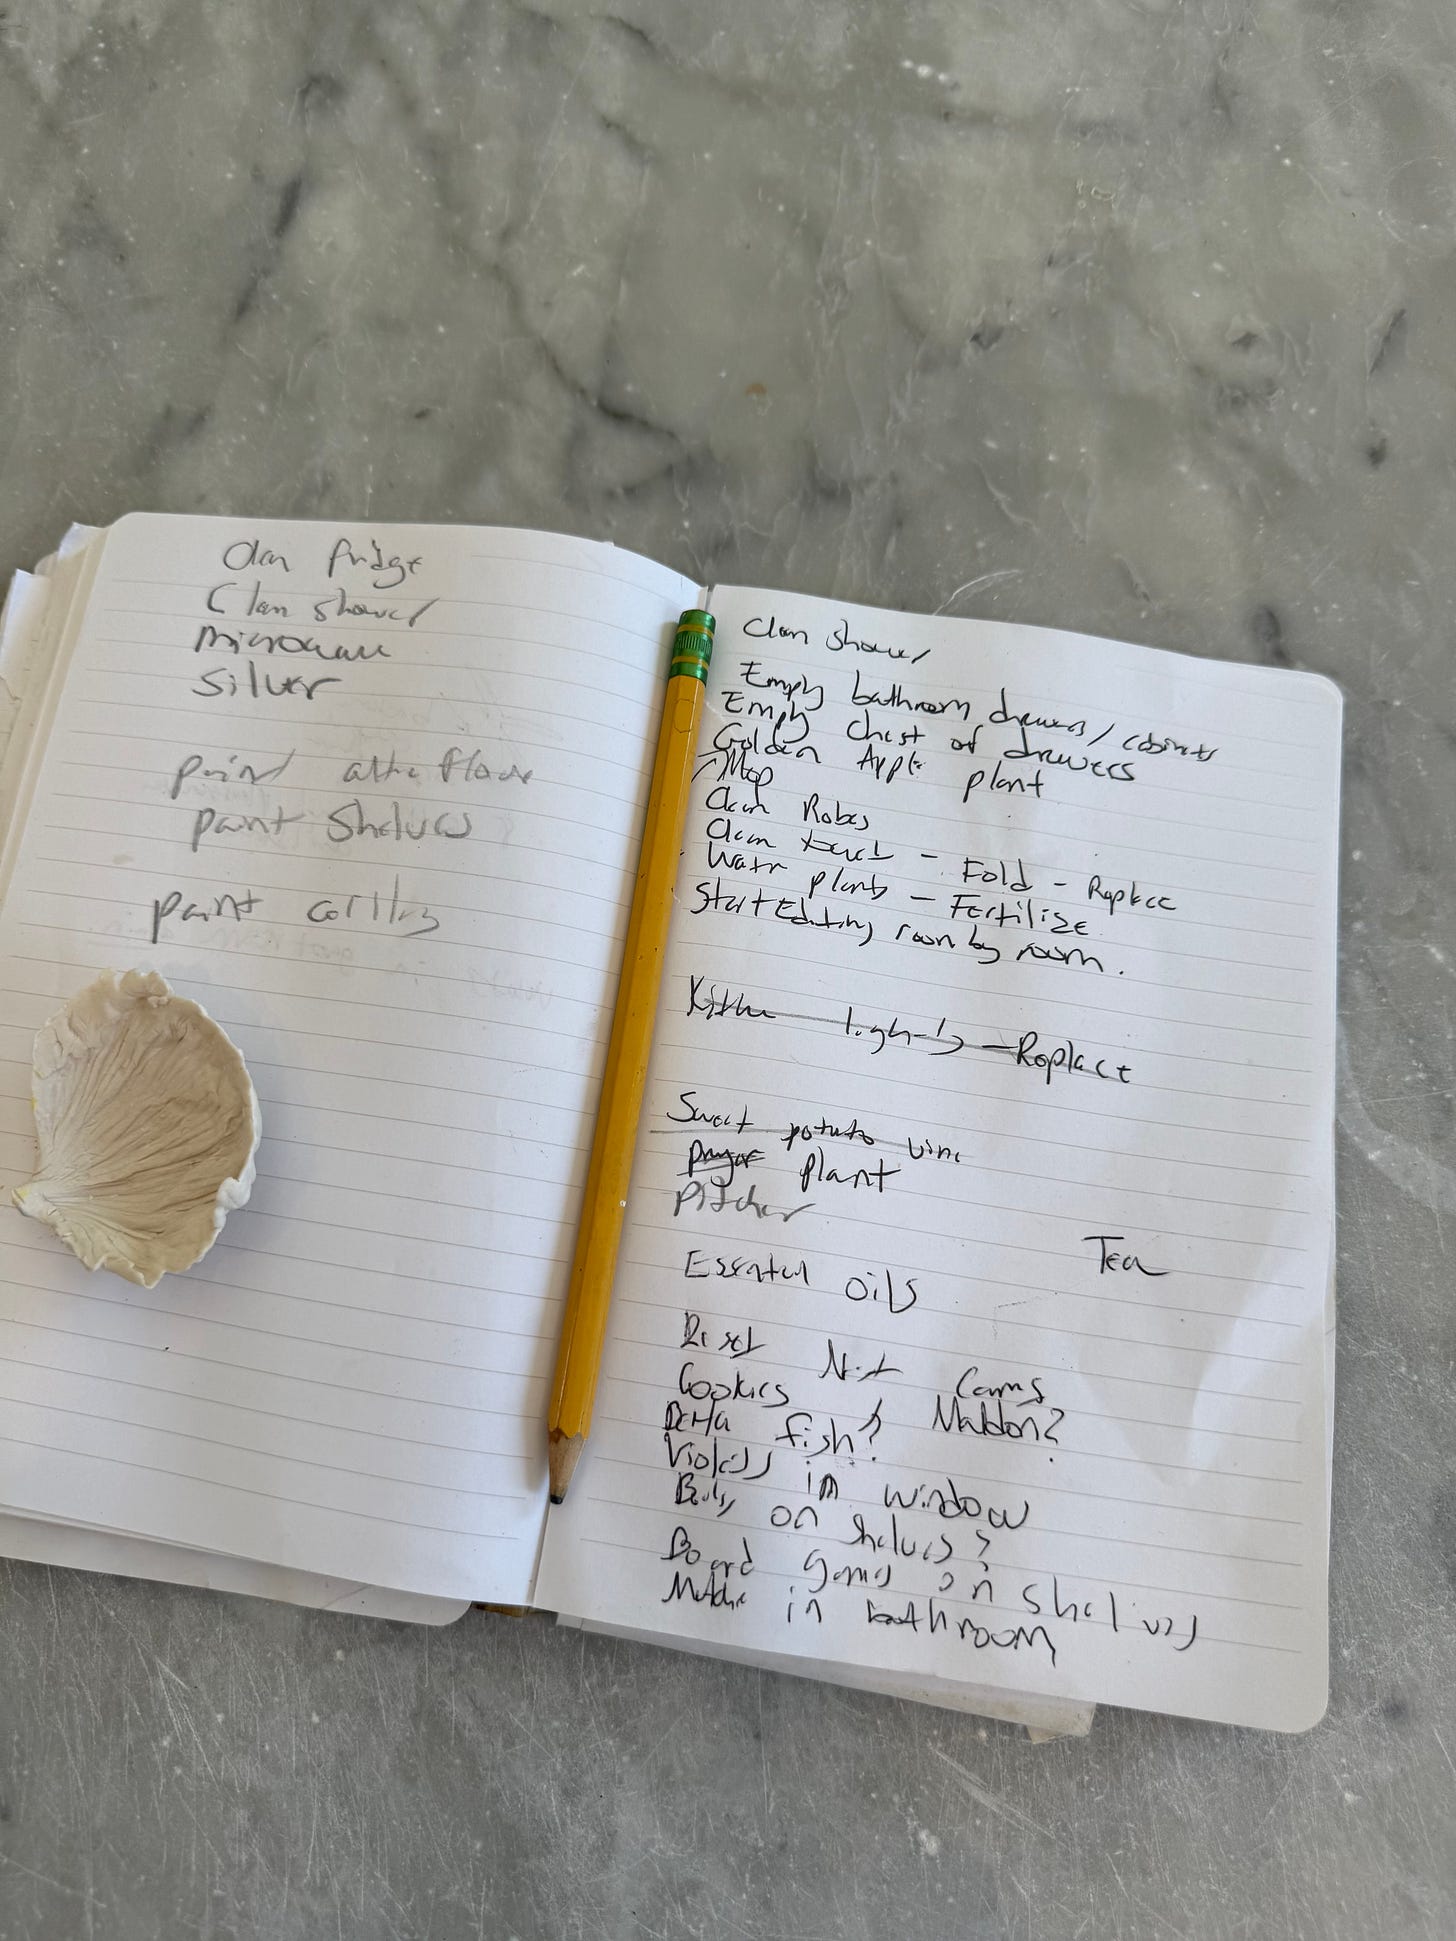 Clean fridge
Clean shower
microwave
Silver
paint attic floor
paint shelves
paint
Clean shower
Empty bathroom drawers / cabinets
Empty Chest of drawers
Golden Apple plant
Mop
Clean Robes
Clean - Fold - Replace
Water plants - Fertilize
Start Editing room by room.
Kitchen lights - Replace
Sweet potato vine
prayer plant
Pitcher
Tea
Essential oils
Reset Nest Cams
Cookies Maldon?
Betta fish?
Violets in window
on shelves?
Board games on shelves
in bathroom